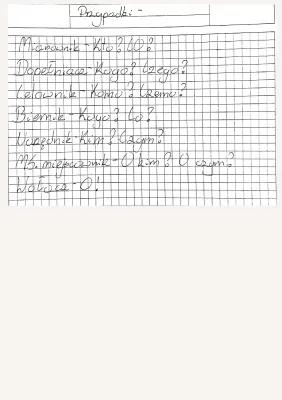 Przypadki -
Mianownik - Kto? CO?
Dopełniacz - Kogo? Czego?
Celownik - Komu? Czemu?
Biernik - Kogo? Co?
Narzędnik - Kim? Czym?
Ms. miejscownik - O kim? O czym?
Wołacz - O!